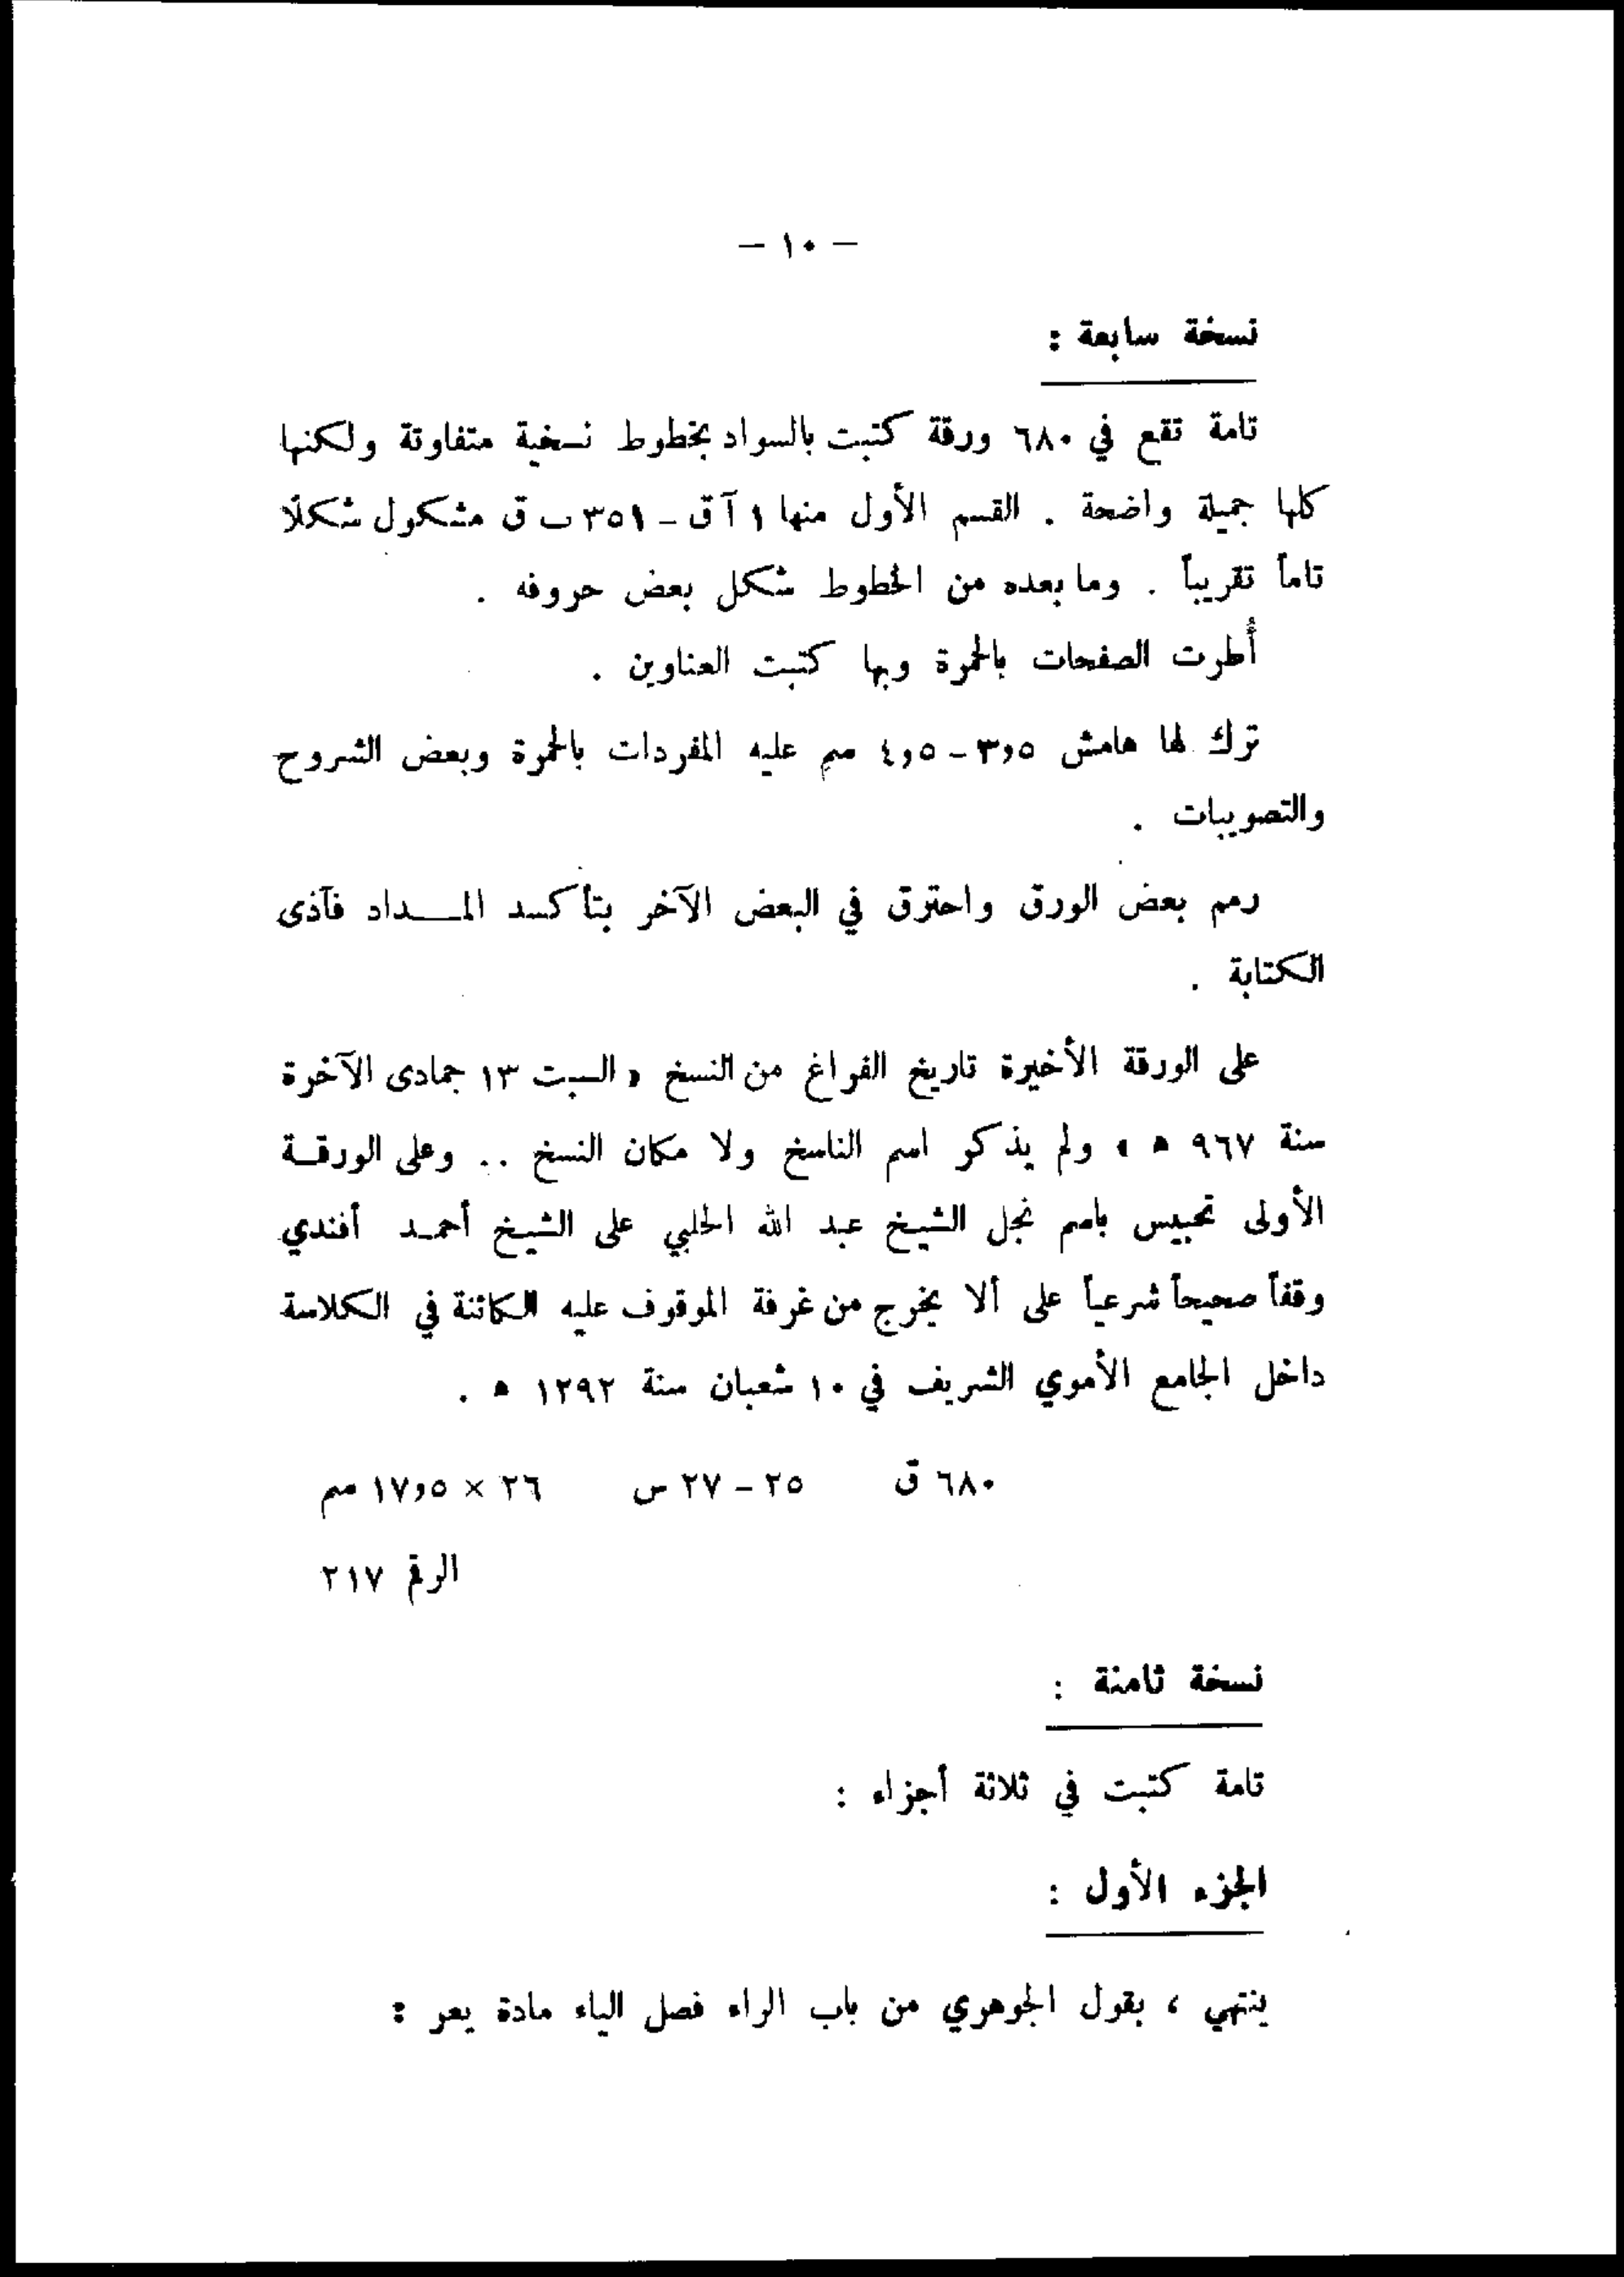 — ١٠ —
نسخة سابعة :
تامة تقع في ٦٨٠ ورقة كتبت بالسواد بخطوط نسخية متفاوتة ولكنها
كلها جميلة واضحة . القسم الأول منها ١ آ ق ـ ٣٥١ ب ق مشكول شكلًا
تاماً تقريباً . وما بعده من الخطوط شكل بعض حروفه .
أُطرت الصفحات بالحمرة وبها كتبت العناوين .
ترك لها هامش ٣,٥ ـ ٤,٥ سم عليه المفردات بالحمرة وبعض الشروح
والتصويبات .
رمم بعض الورق واحترق في البعض الآخر بتأكسد المـــداد فآذى
الكتابة .
على الورقة الأخيرة تاريخ الفراغ من النسخ « السبت ١٣ جمادى الآخرة
سنة ٩٦٧ ه » ولم يذكر اسم الناسخ ولا مكان النسخ .. وعلى الورقـة
الأولى تحبيس باسم نجل الشيخ عبد الله الحلبي على الشيخ أحمـد أفندي
وقفاً صحيحاً شرعياً على ألا يخرج من غرفة الموقوف عليه الكائنة في الكلاسة
داخل الجامع الأموي الشريف في ١٠ شعبان سنة ١٢٩٢ ه .
٦٨٠ ق ٢٥ ـ ٢٧ س ٢٦ × ١٧,٥ سم
الرقم ٢١٧
نسخة ثامنة :
تامة كتبت في ثلاثة أجزاء :
الجزء الأول :
ينتهي ، بقول الجوهري من باب الراء فصل الياء مادة يعر :